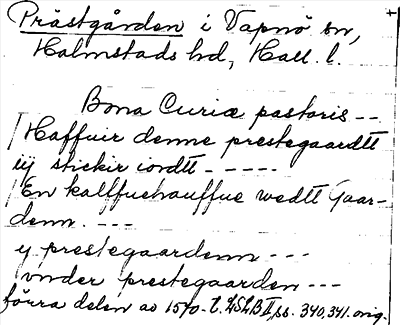 Prästgården i Vapnö sn,
Halmstads hd, Hall. l.
Bona Curiæ pastoris --
Haffuir denne prestegaardtt
iij stickir iordtt - - - - -
En kallffuehauffue wedtt gaar-
denn. ---
ij prestegaardenn ---
vnder prestegaarden ---
förra delen av 1570-t. LSLB II, ss. 340, 341. orig.